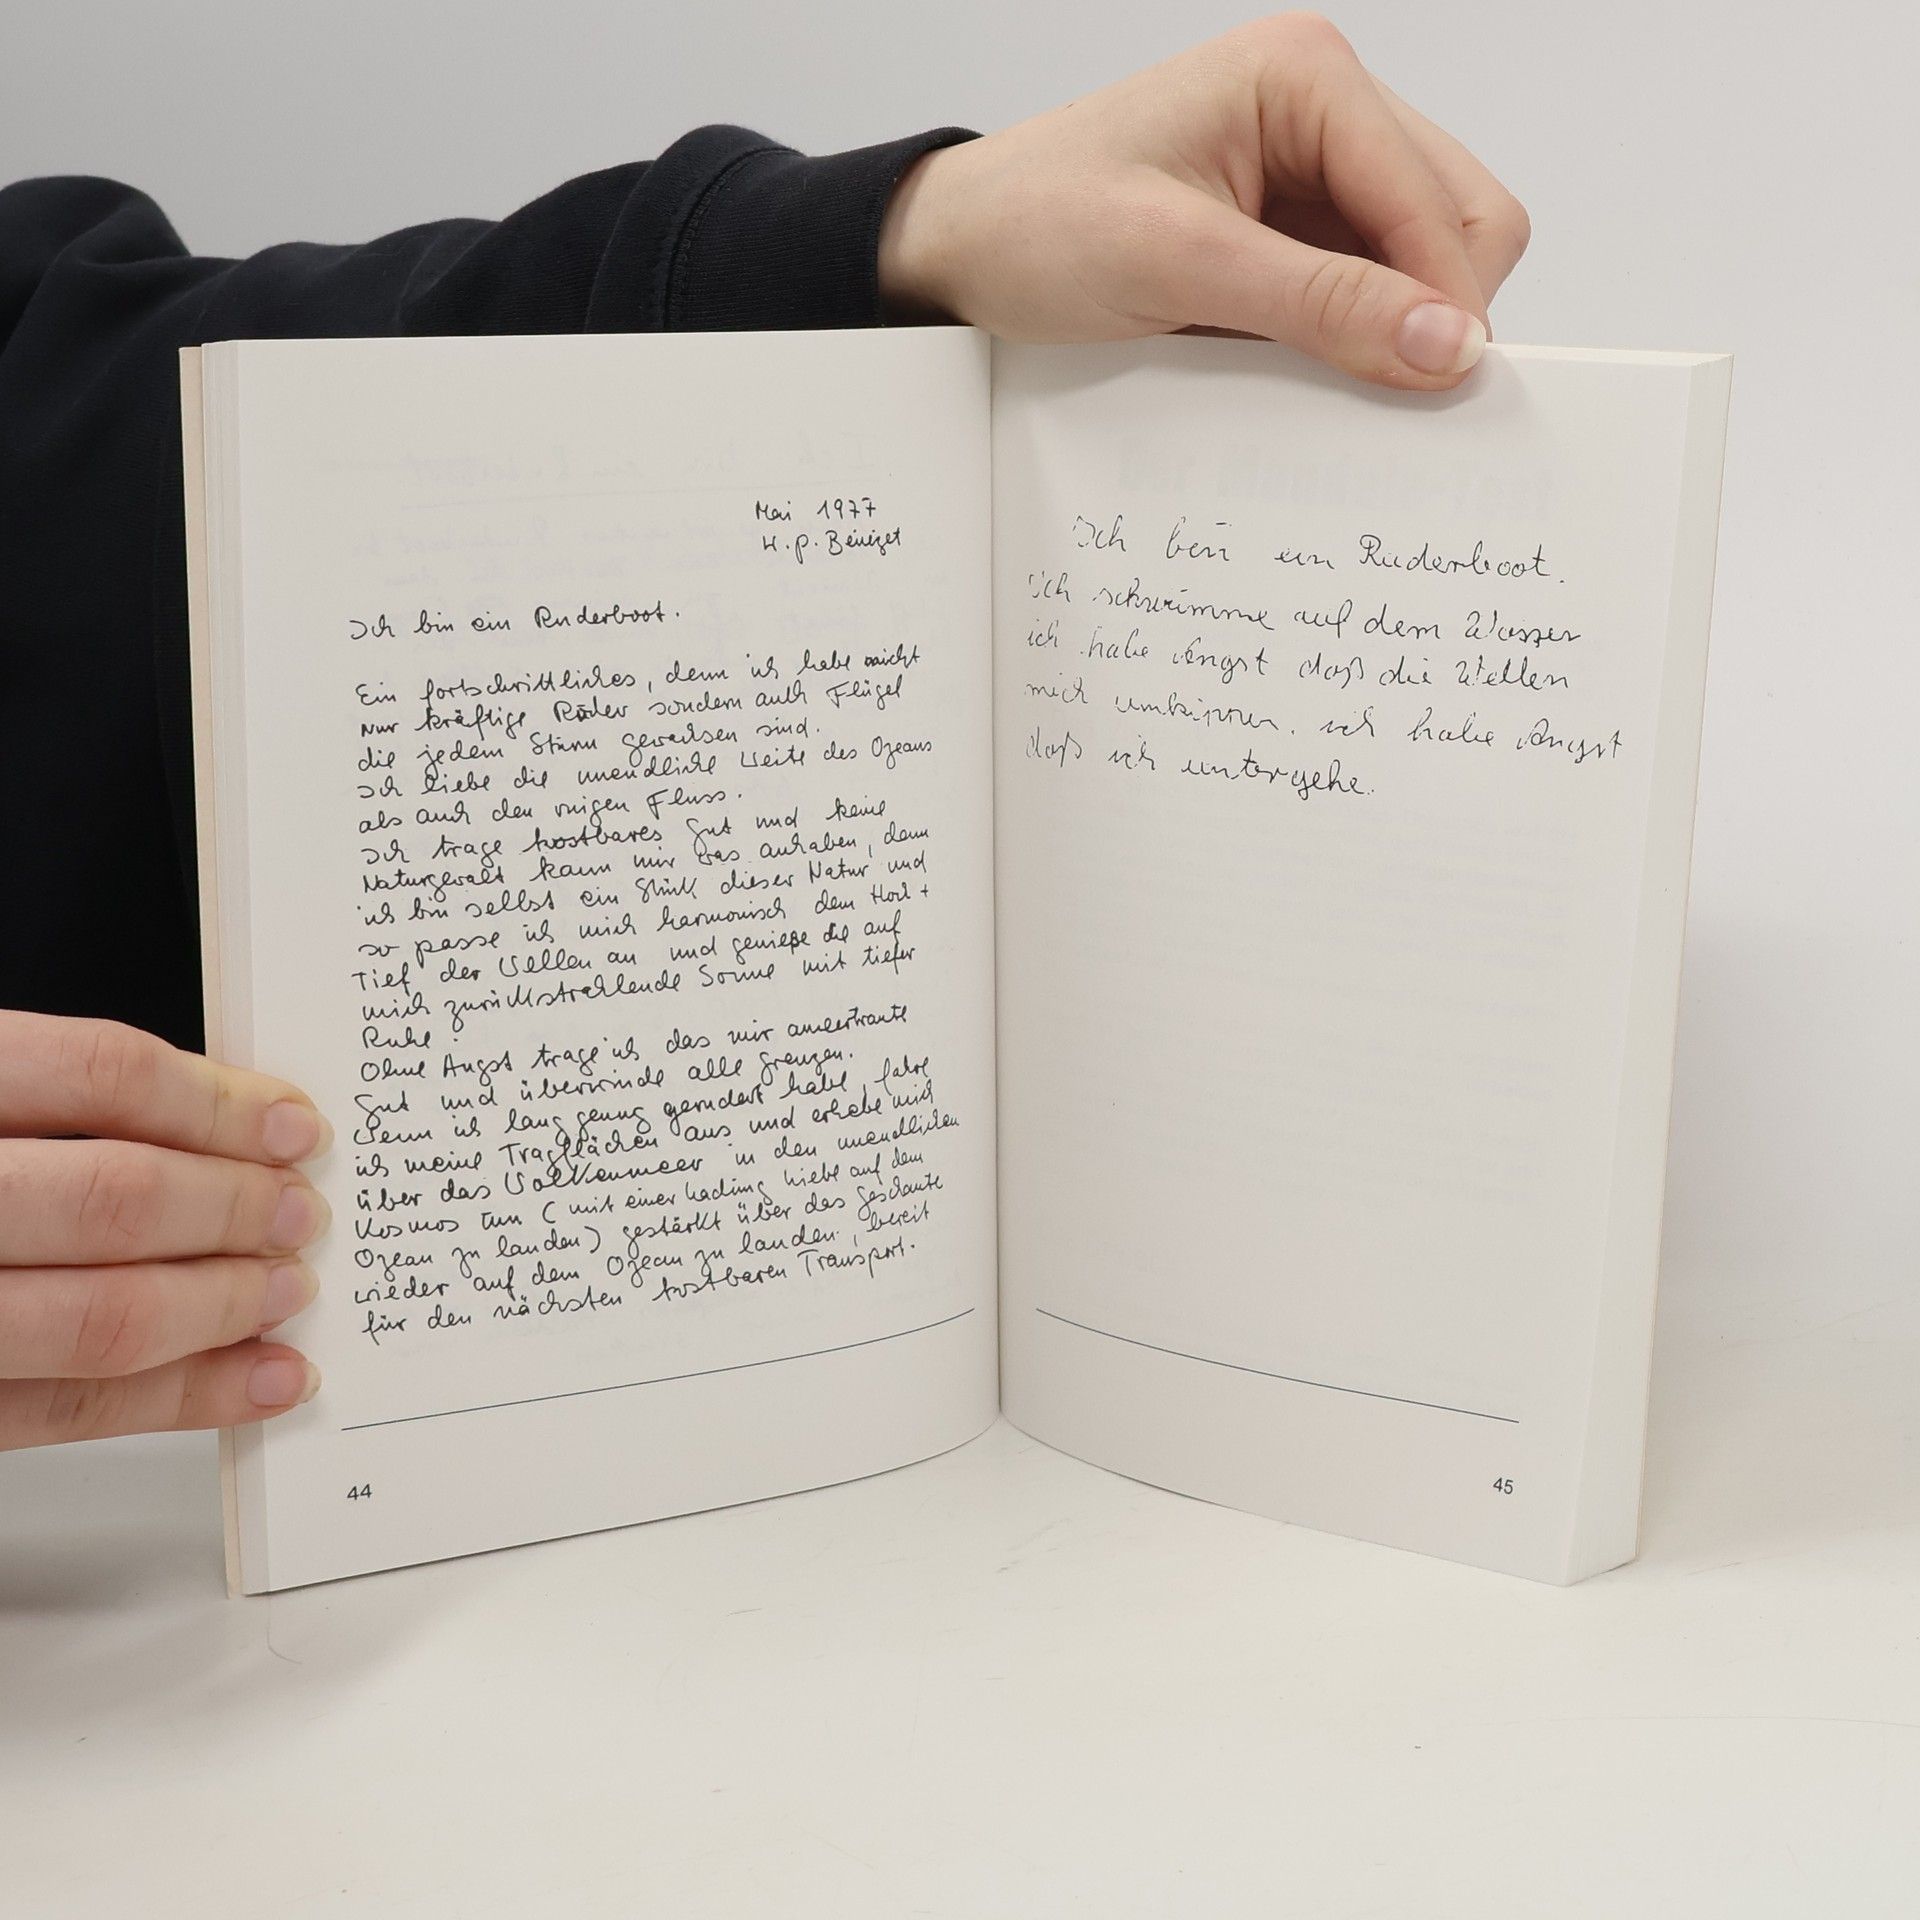 Mai 1977
H. P. Benézet
Ich bin ein Ruderboot.
Ein fortschrittliches, denn ich habe nicht
nur kräftige Ruder sondern auch Flügel
die jedem Sturm gewachsen sind.
Ich liebe die unendliche Weite des Ozeans
als auch den ruigen Fluss.
Ich trage kostbares Gut und keine
Naturgewalt kann mir was anhaben, denn
ich bin selbst ein Stück dieser Natur und
so passe ich mich harmonisch dem Hoch +
Tief der Wellen an und genieße die auf
mich zurückstrahlende Sonne mit tiefer
Ruhe.
Ohne Angst trage ich das mir anvertraute
Gut und überwinde alle Grenzen.
Wenn ich lang genug gerudert habe, fahre
ich meine Tragflächen aus und erhebe mich
über das Wolkenmeer in den unendlichen
Kosmos um (mit einer Ladung Liebe auf dem
Ozean zu landen) gestärkt über das geschaute
wieder auf dem Ozean zu landen, bereit
für den nächsten kostbaren Transport.
44
Ich bin ein Ruderboot.
ich schwimme auf dem Wasser
ich habe Angst daß die Wellen
mich umkippen. ich habe Angst
daß ich untergehe.
45